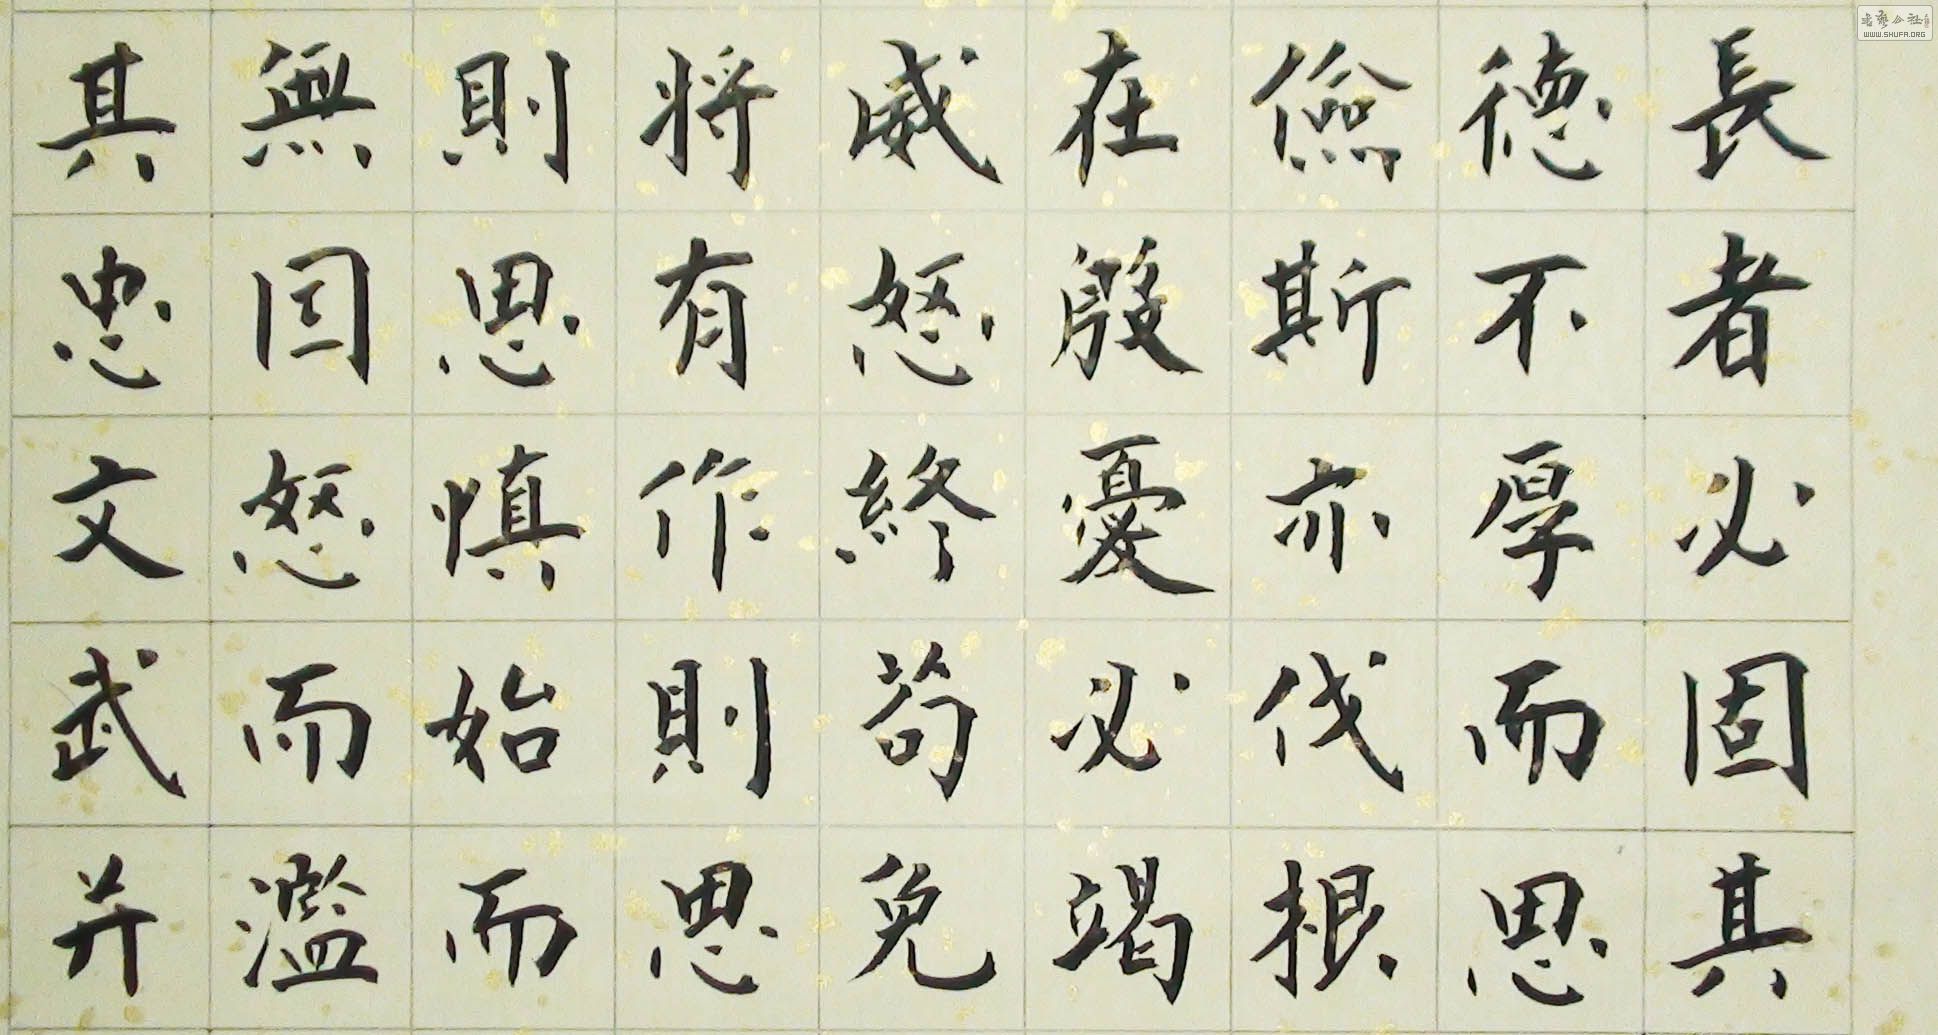 長者必固其
德不厚而思
儉斯亦伐根
在殷憂必竭
威怒終苟免
将有作則思
則思慎始而
無因怒而濫
其忠文武并
書藝公社
WWW.SHUFA.ORG